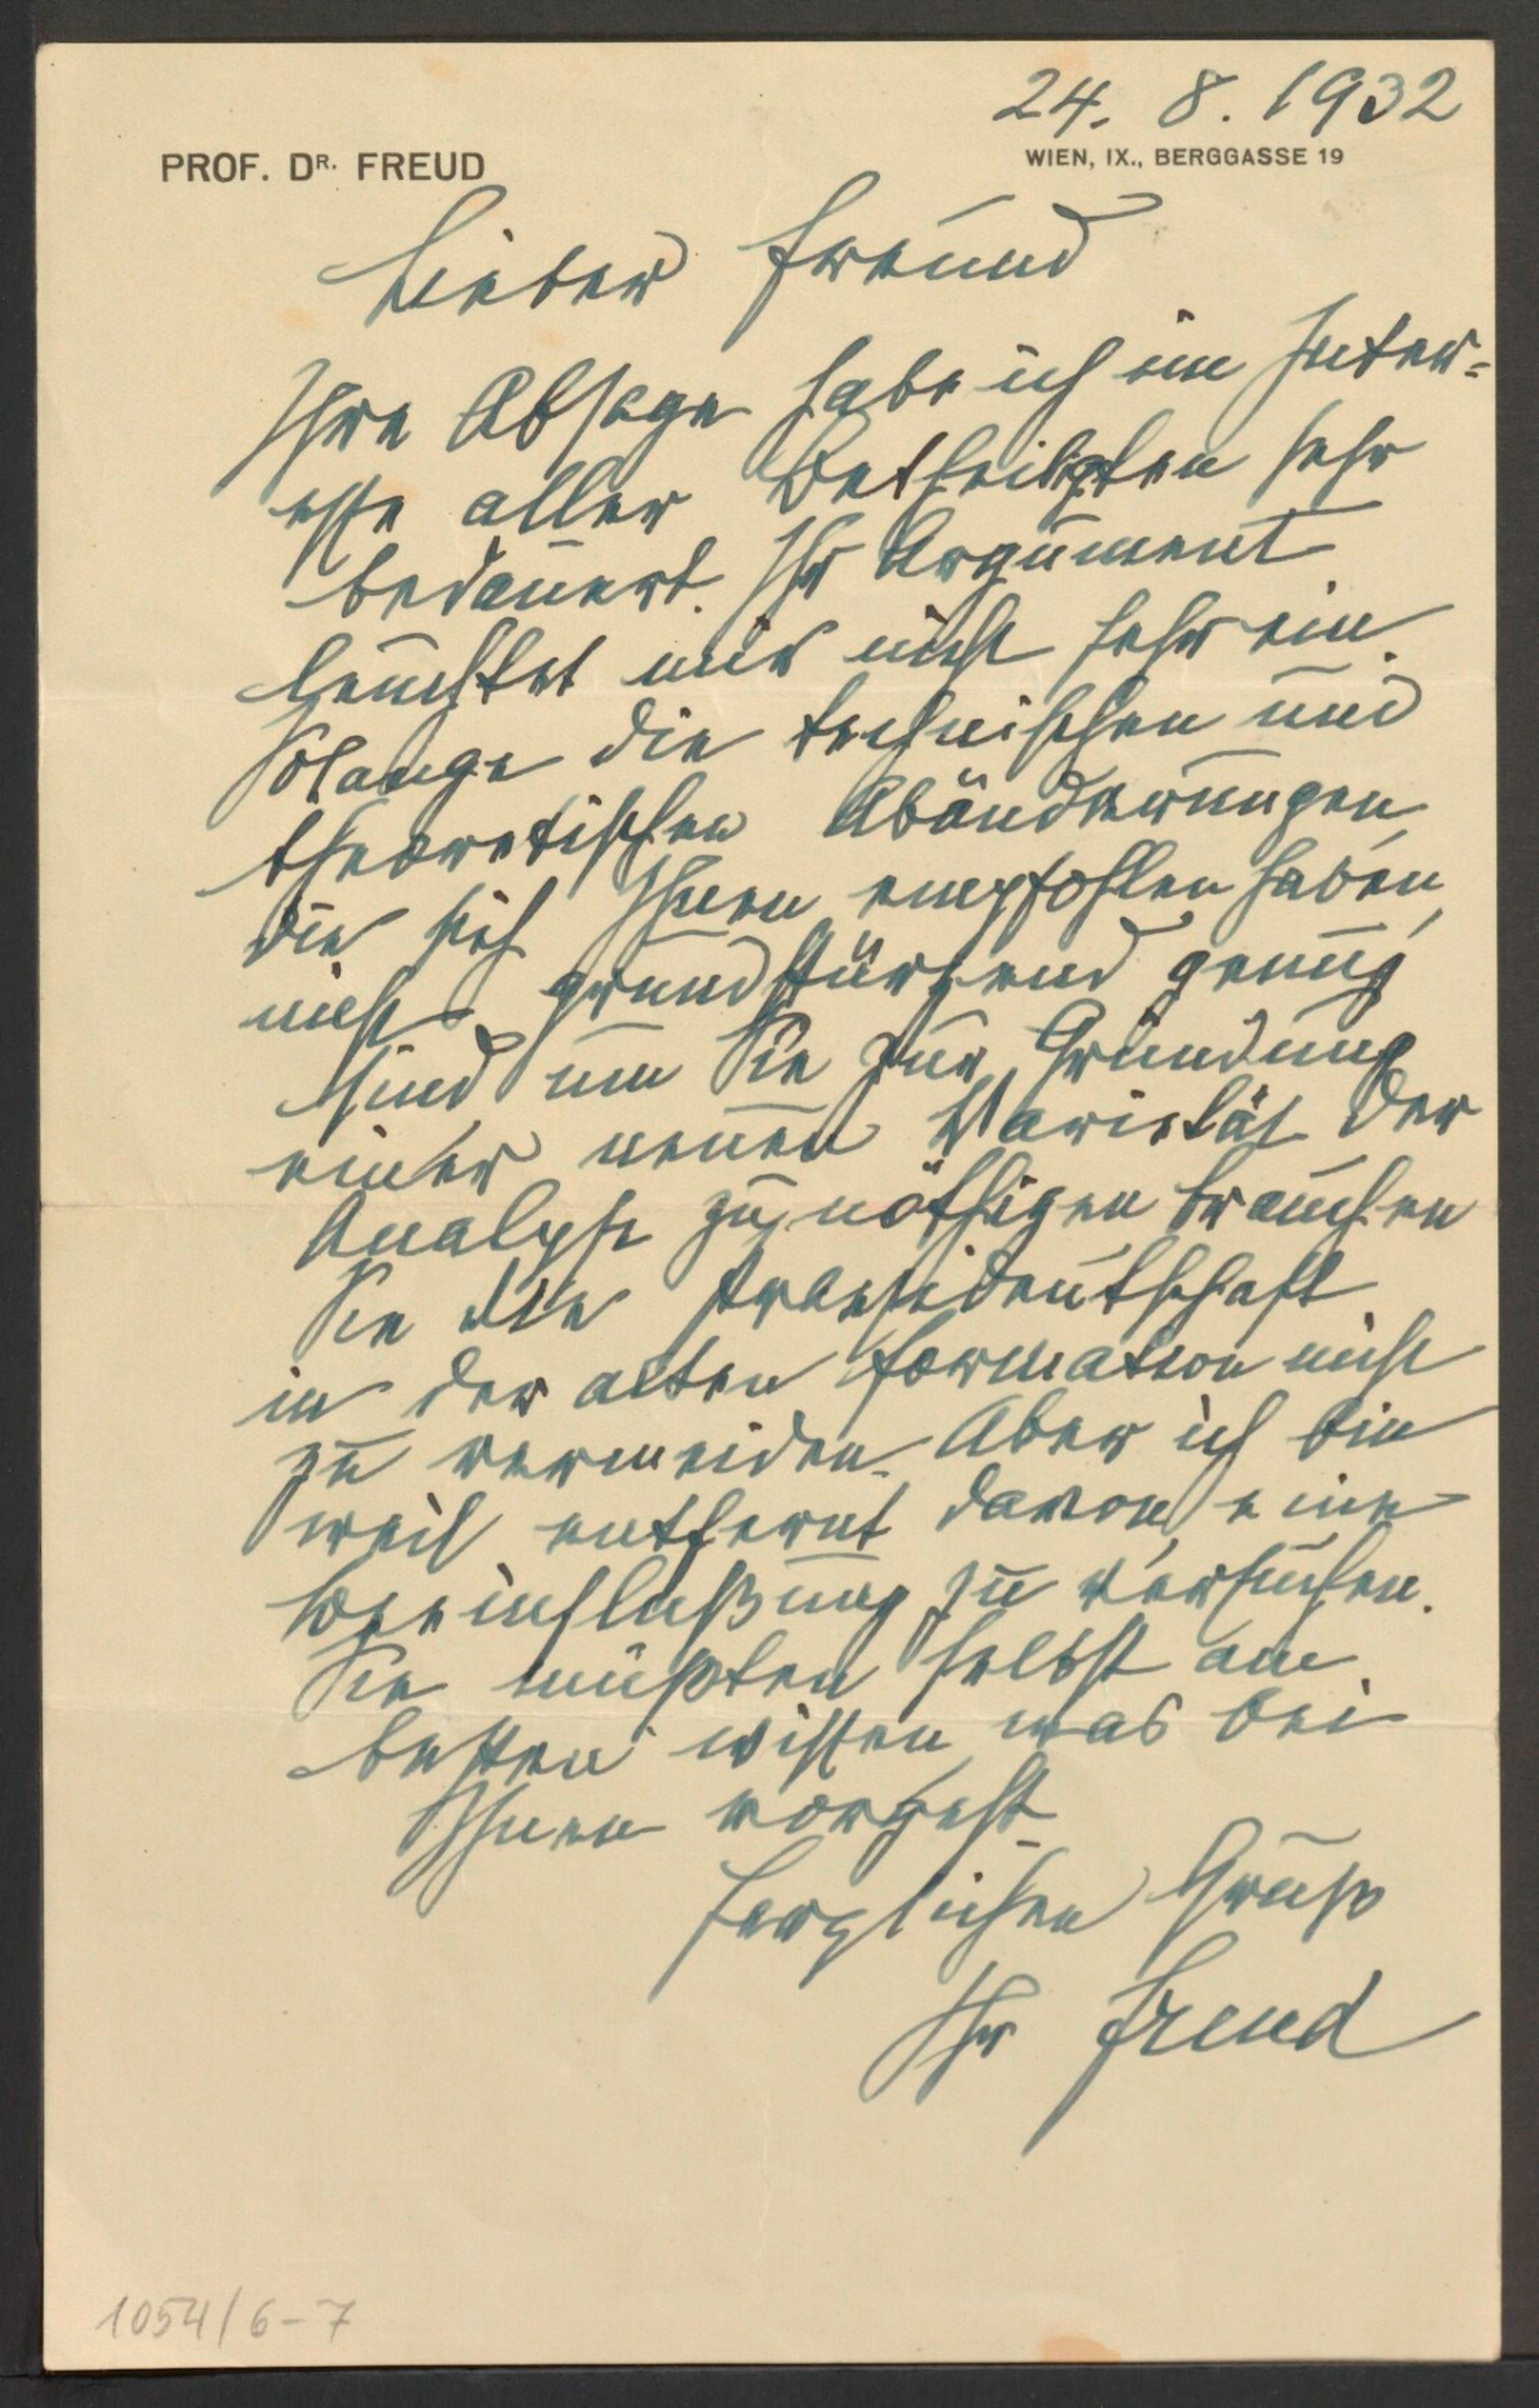 24. 8. 1932
PROF. DR. FREUD
WIEN, IX., BERGGASSE 19
Lieber Freund
Ihre Absage habe ich im Inter-
esse aller Betheiligten sehr
bedauert. Ihr Argument
leuchtet mir nicht sehr ein.
Solange die technischen und
theoretischen Abänderungen,
die sich Ihnen empfohlen haben,
nicht grundstürzend genug
sind um Sie zur Gründung
einer neuen Varietät der
Analyse zu nöthigen brauchen
Sie die Praesidentschaft
in der alten Formation nicht
zu vermeiden. Aber ich bin
weit entfernt davon, eine
Beeinflußung zu versuchen.
Sie müßten selbst am
besten wissen, was bei
Ihnen vorgeht.
Herzlichen Gruß
Ihr Freud
1054/6-7